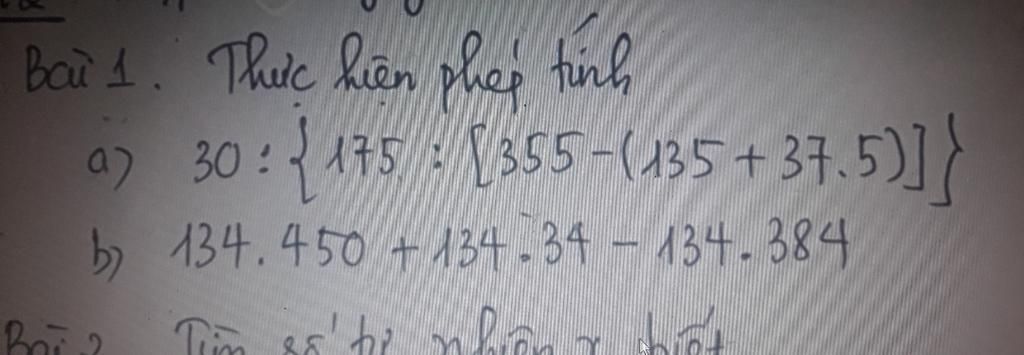 Bài 1. Thực hiện phép tính
a) 30 : {175 : [355 - (135 + 37.5)]}
b) 134.450 + 134.34 - 134.384
Bài 2 Tìm số tự nhiên x biết